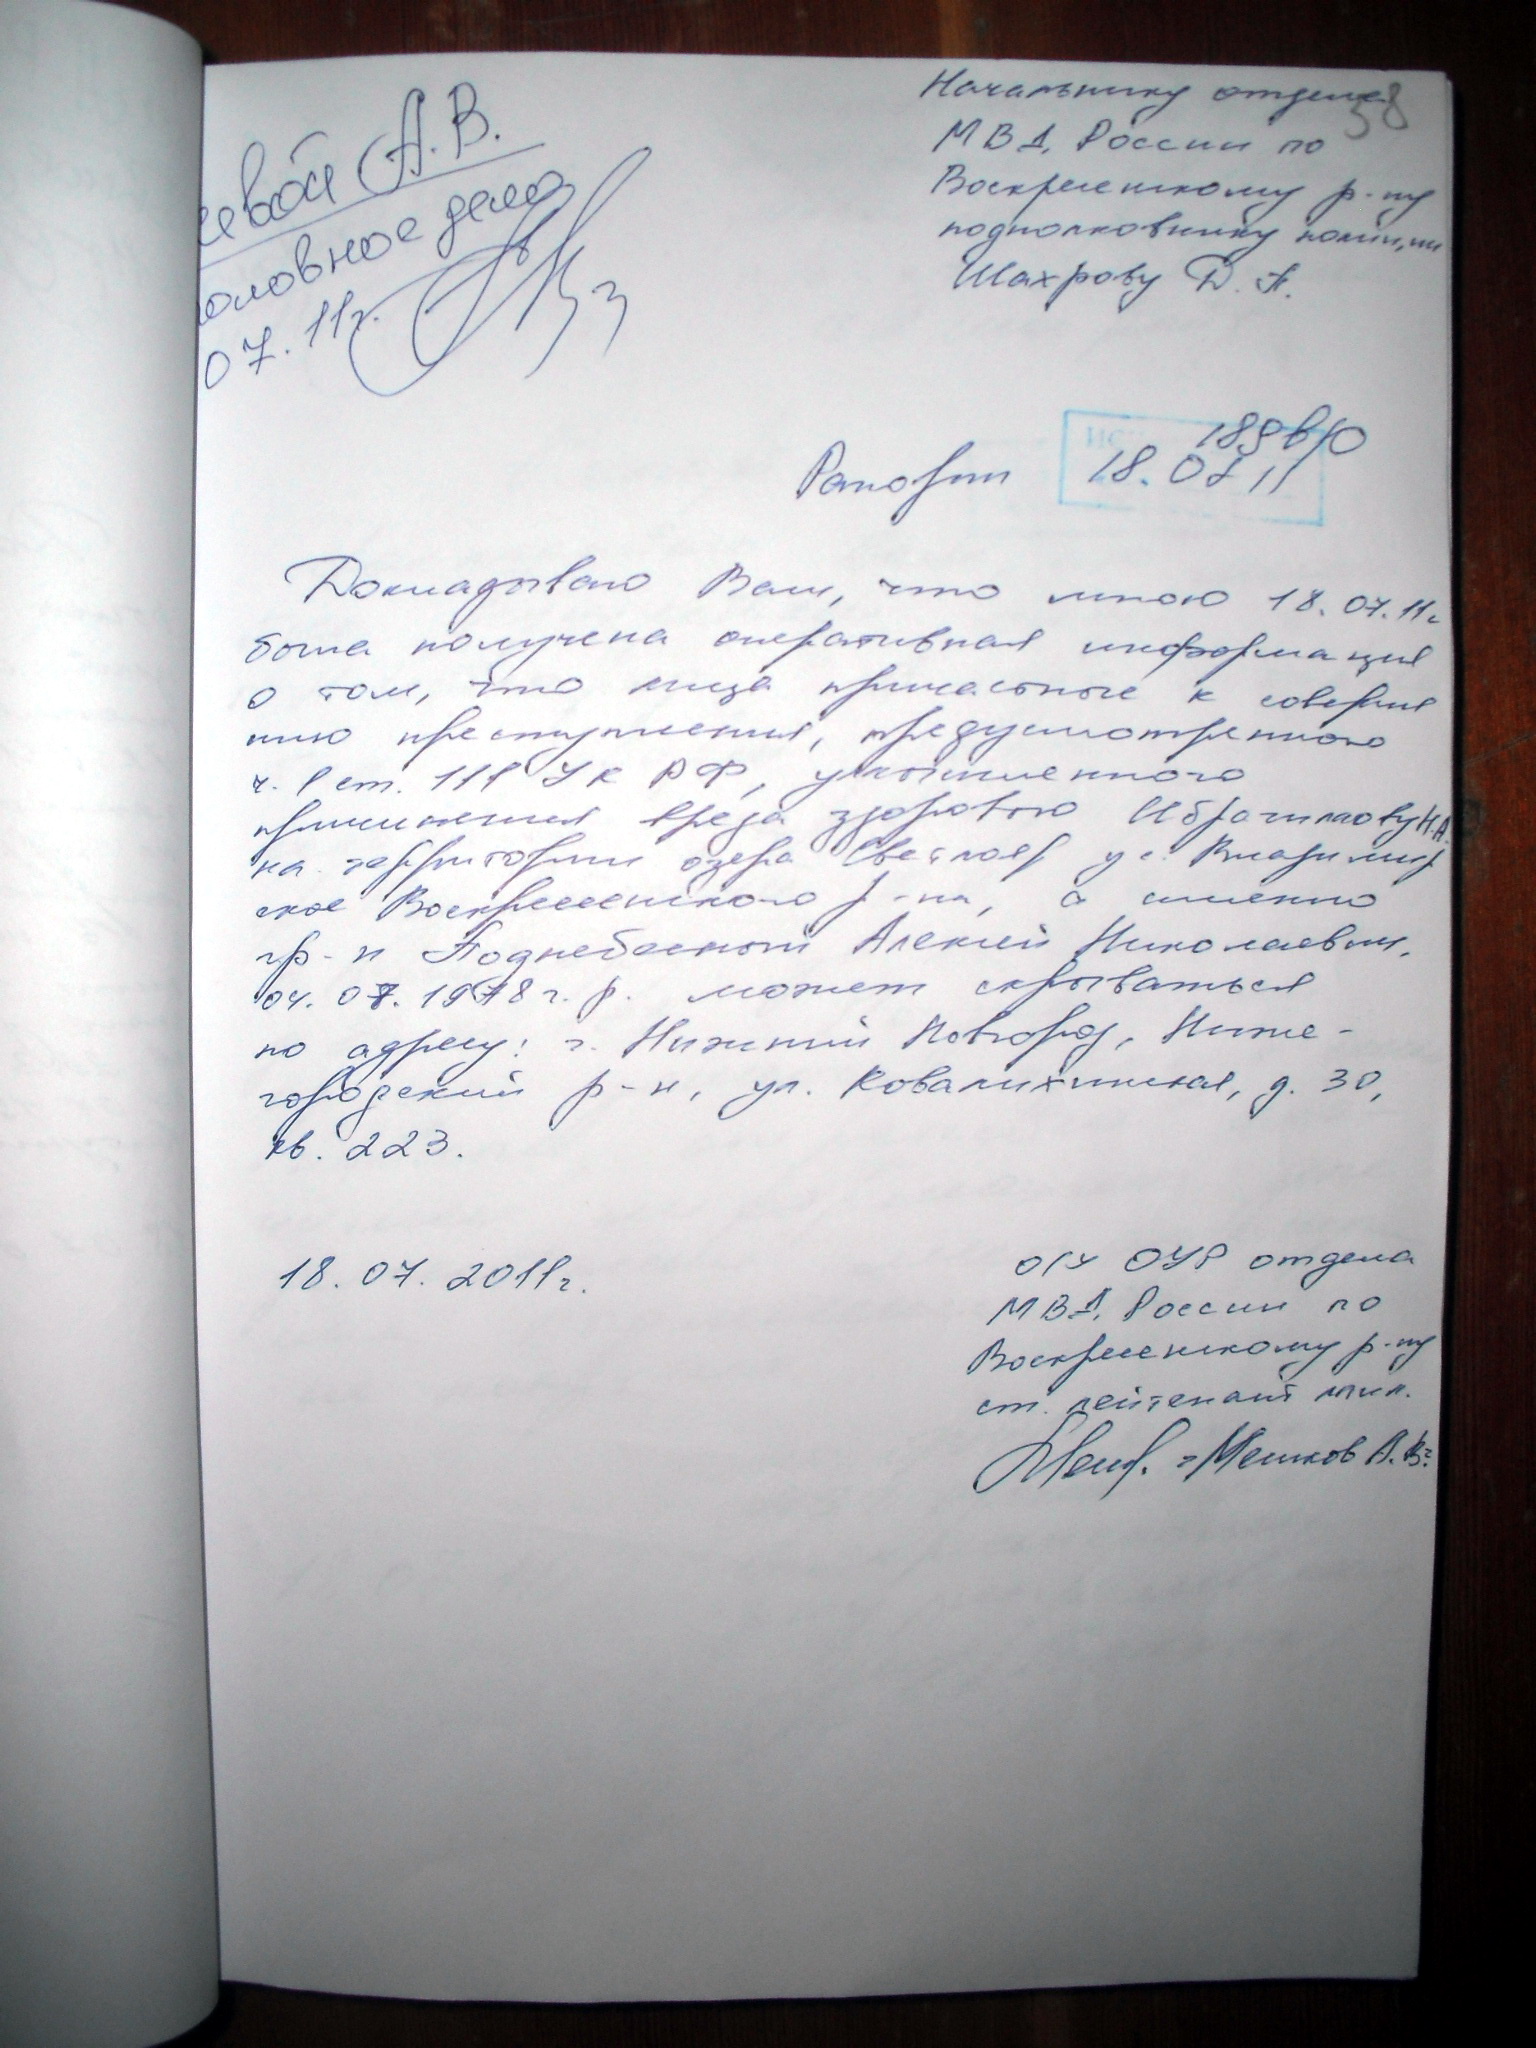 58
Начальнику отдела
МВД России по
Воскресенскому р-ну
подполковнику полиции
Шахрову Д. А.
евой А.В.
головное дело
07.11г.
189в/О
18.07 11
Рапорт
Докладываю Вам, что мною 18.07.11г
была получена оперативная информация
о том, что лица причастные к соверше
нию преступления, предусмотренного
ч. 1 ст. 111 УК РФ, умышленного
причинения вреда здоровью Ибрагимову Н.А.
на территории озера Светлояр у с. Владимир
ское Воскресенского р-на, а именно
гр-н Поднебесный Алексей Николаевич,
04.07.1978 г.р. может скрываться
по адресу: г. Нижний Новгород, Ниже-
городский р-н, ул. Ковалихинская, д. 30,
кв. 223.
18.07.2011г.
о/у ОУР отдела
МВД России по
Воскресенскому р-ну
ст. лейтенант мил.
Мешков А.В.